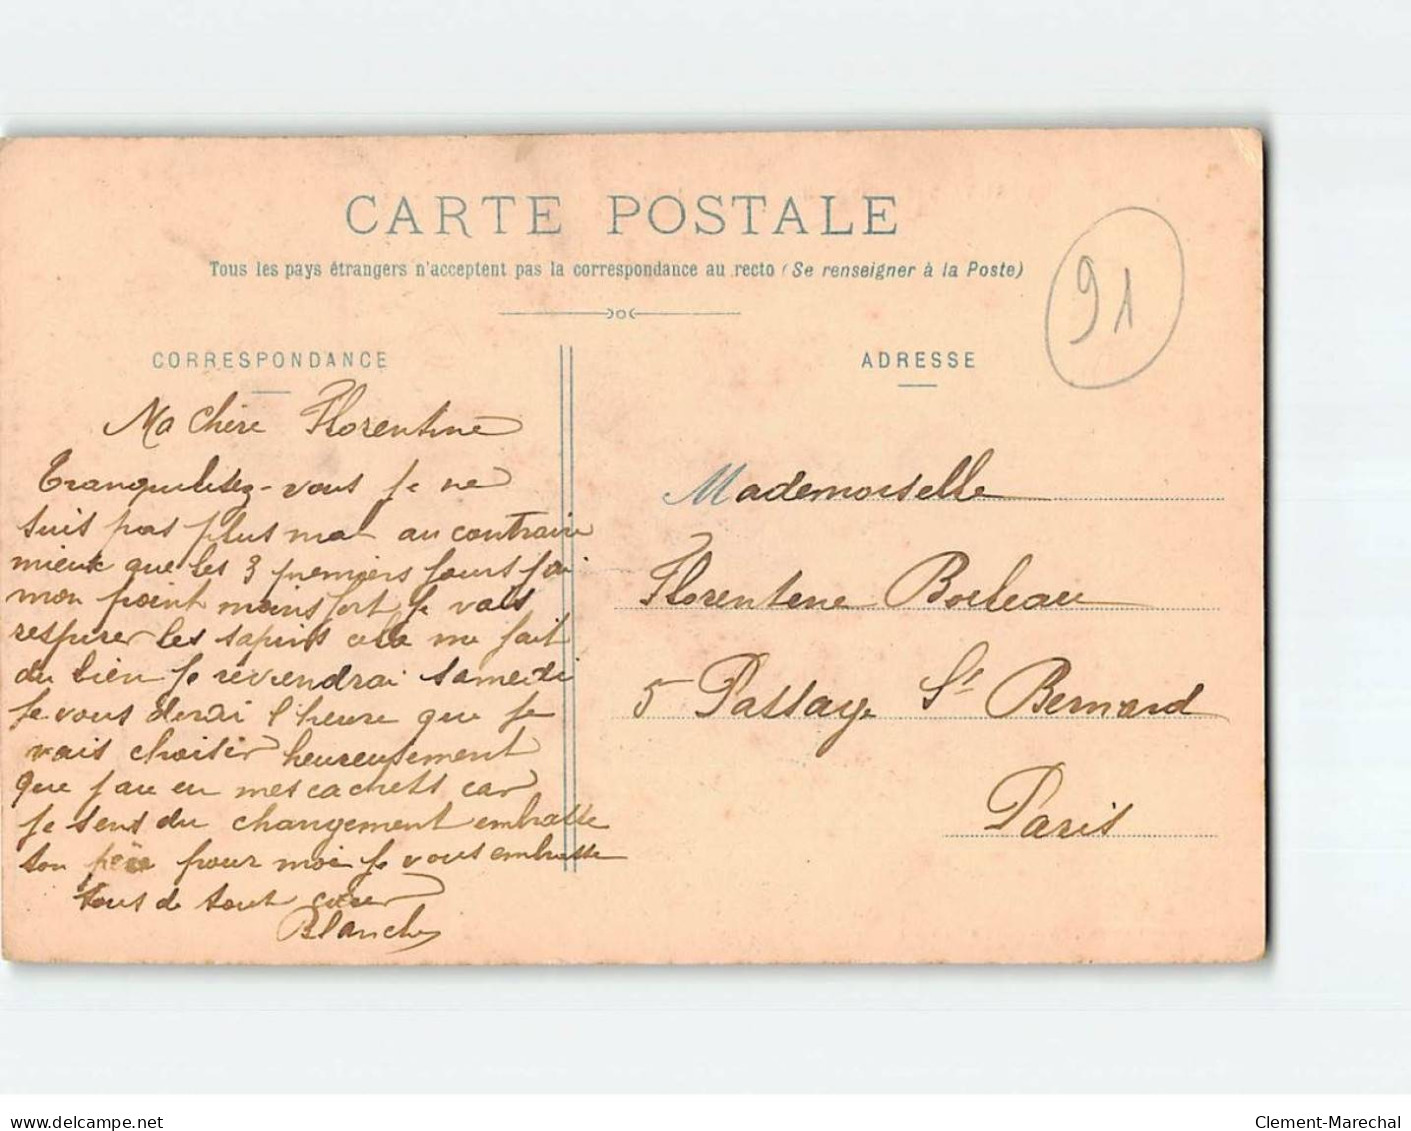 CARTE POSTALE
Tous les pays étrangers n'acceptent pas la correspondance au recto (Se renseigner à la Poste)
91
CORRESPONDANCE
Ma Chère Florentine
Tranquilisez-vous je ne
suis pas plus mal au contraire
mieux que les 3 premiers jours j'ai
mon point moins fort, je vais
respirer les sapins cela me fait
du bien je reviendrai samedi
je vous dirai l'heure que je
vais choisir heureusement
que j'ai eu mes cachets car
je sens du changement embrasse
ton père pour moi je vous embrasse
tous de tout cœur
Blanche
ADRESSE
Mademoiselle
Florentine Boileau
5 Passage St Bernard
Paris
delcampe.net
Clement-Marechal